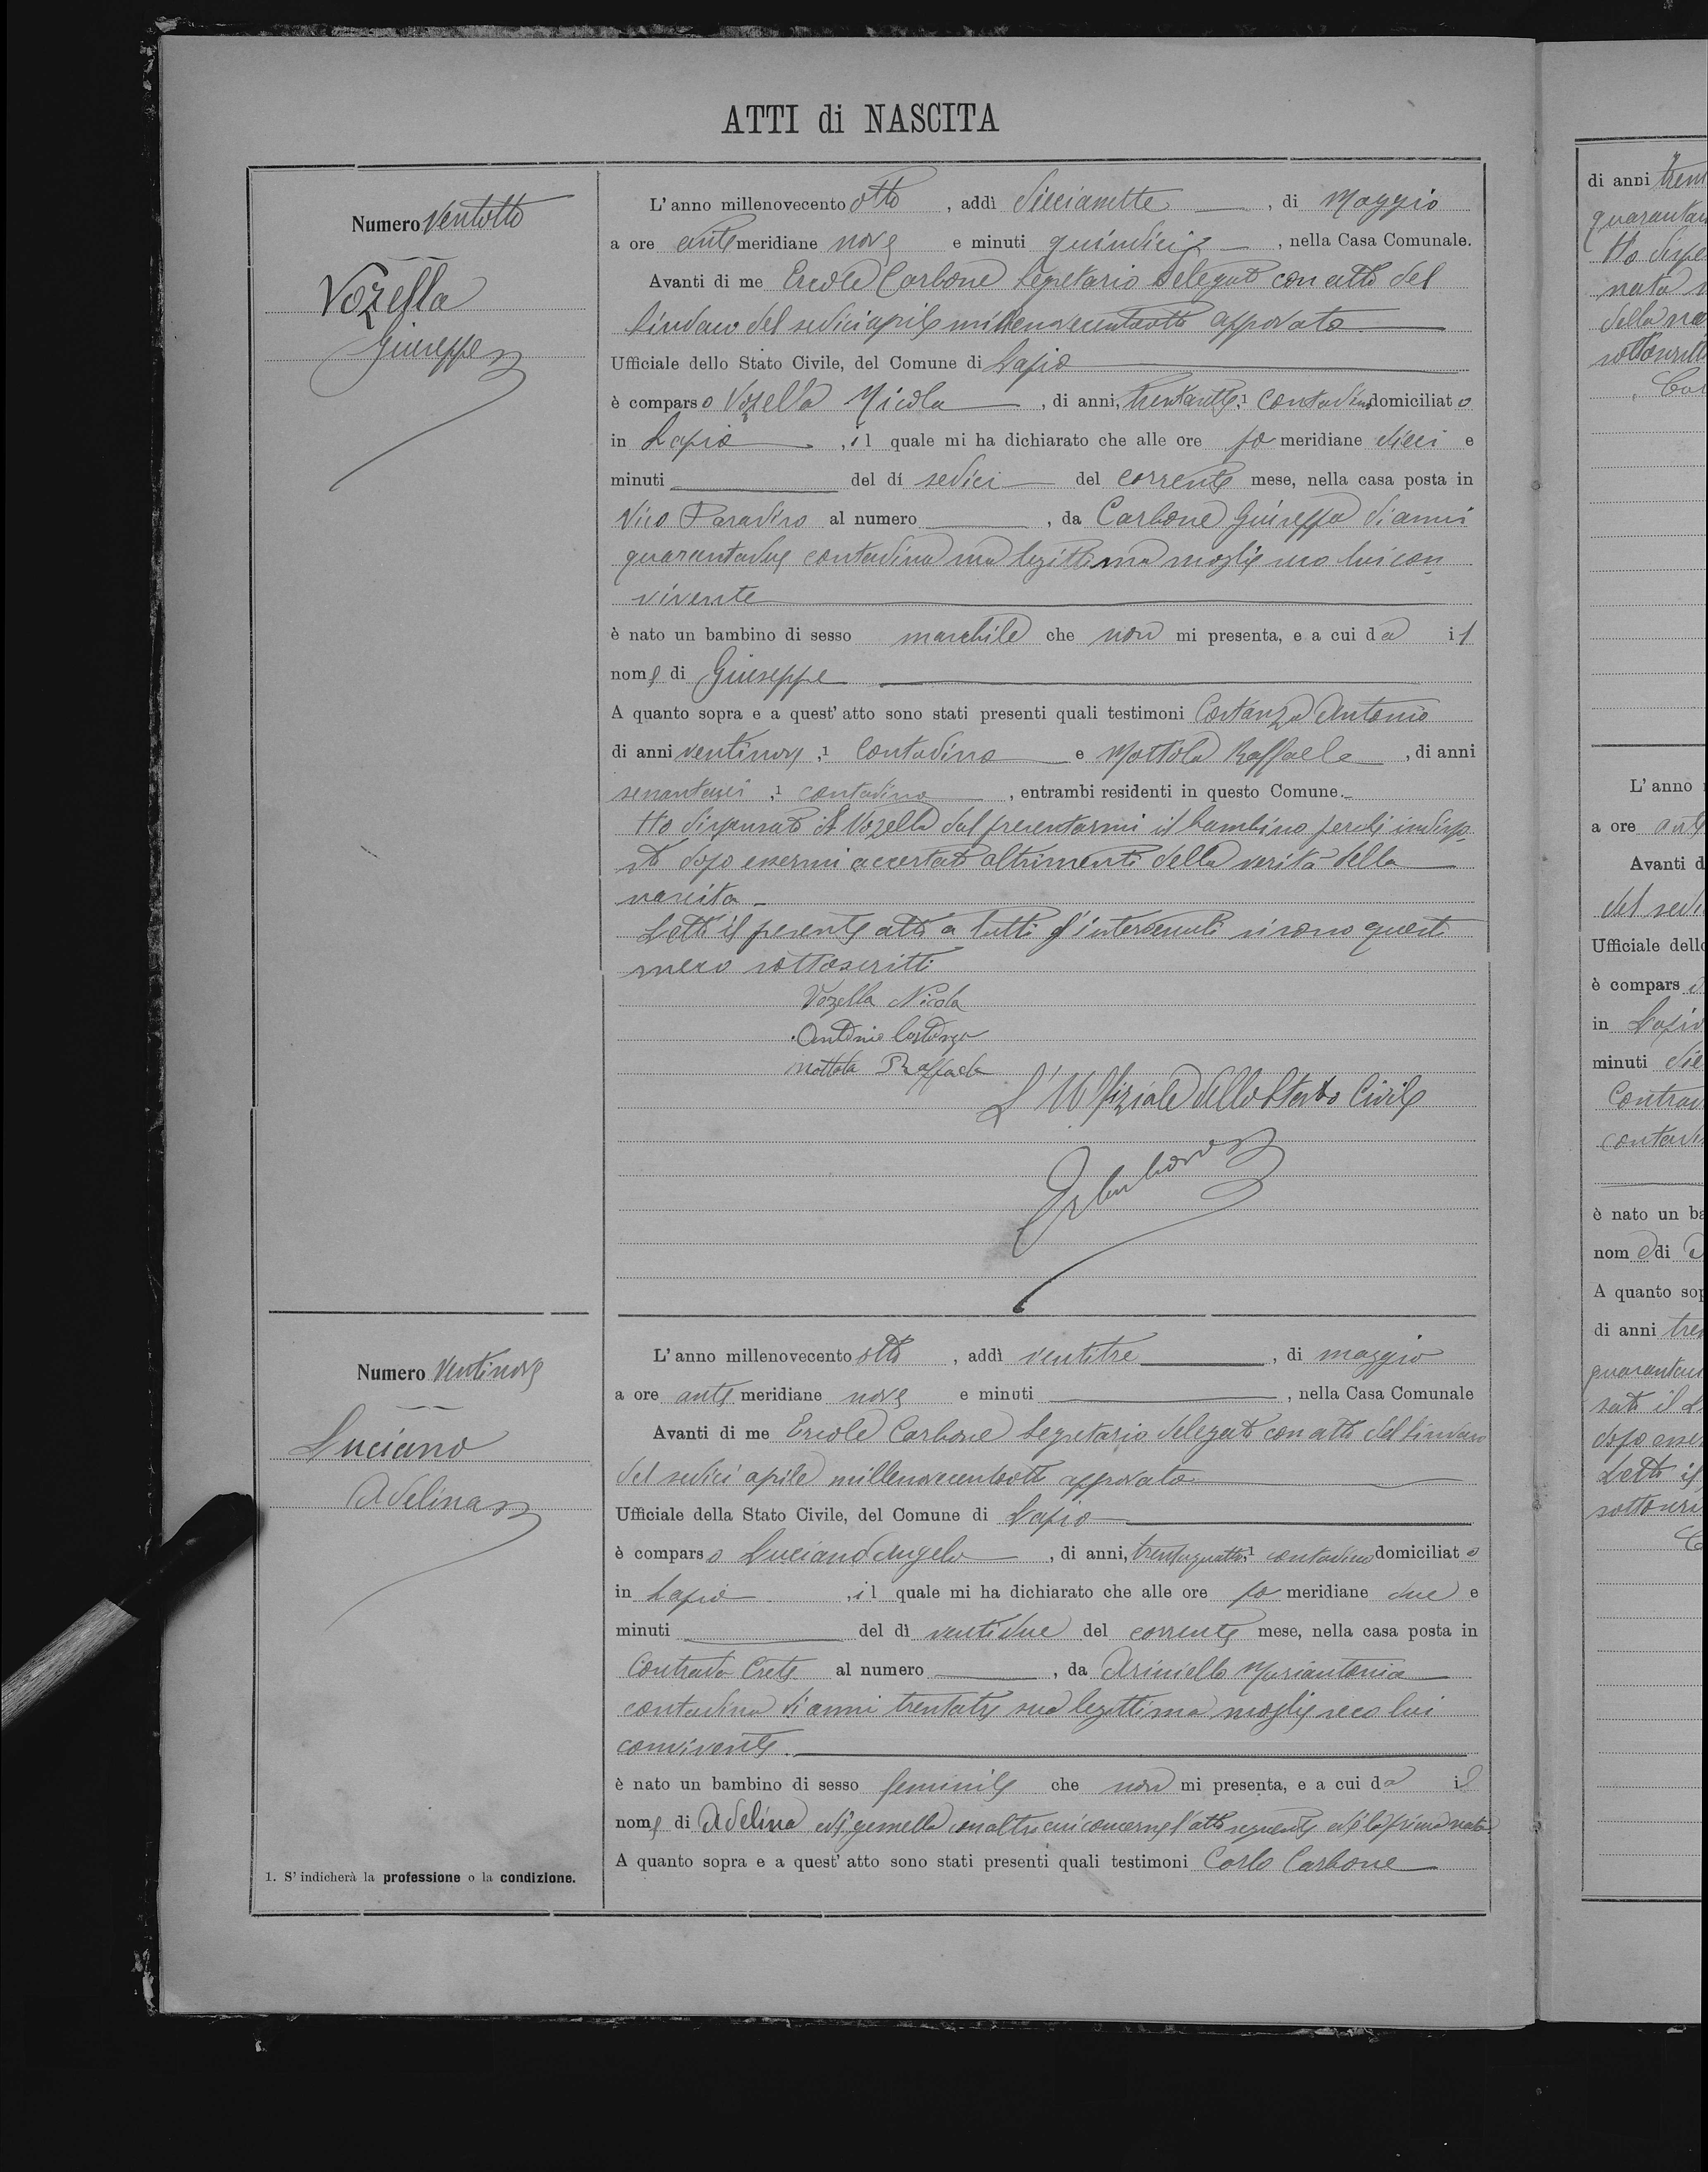 ATTI di NASCITA
Numero Ventotto
Vozella
Giuseppe
L'anno millenovecento otto, addì diecianette, di Maggio
a ore antemeridiane nove e minuti quindici, nella Casa Comunale.
Avanti di me Ercole Carbone Segretario delegato con atto del
Sindaco del sedici aprile millenovecentootto approvato
Ufficiale dello Stato Civile, del Comune di Lapio
è comparso Vozella Nicola, di anni, trentasette,1 contadino domiciliato
in Lapio, il quale mi ha dichiarato che alle ore pomeridiane dieci e
minuti del dì sedici del corrente mese, nella casa posta in
Vico Paradiso al numero, da Carbone Giuseppa di anni
quarantadue contadina sua legittima moglie seco lui con
vivente
è nato un bambino di sesso maschile che non mi presenta, e a cui da il
nome di Giuseppe
A quanto sopra e a quest'atto sono stati presenti quali testimoni Costanza Antonio
di anni ventinove,1 contadino e Mottola Raffaele, di anni
sessantasei,1 contadino, entrambi residenti in questo Comune.
Ho dispensato il Vozella dal presentarmi il bambino perchè indisp.
to dopo essermi accertato altrimenti della verità della
nascita -
Letto il presente atto a tutti gl'intervenuti si sono questi
meco sottoscritti
Vozella Nicola
Antonio Costanza
Mottola Raffaele
L'Uffiziale dello Stato Civile
Numero Ventinove
Luciano
Adelina
L'anno millenovecento otto, addì ventitre, di maggio
a ore antemeridiane nove e minuti, nella Casa Comunale
Avanti di me Ercole Carbone Segretario delegato con atto del Sindaco
del sedici aprile millenovecentootto approvato
Ufficiale della Stato Civile, del Comune di Lapio
è comparso Luciano Angelo, di anni, trentaquattro,1 contadino domiciliato
in Lapio, il quale mi ha dichiarato che alle ore pomeridiane due e
minuti del dì ventidue del corrente mese, nella casa posta in
Contrada Crete al numero, da Ariniello Mariantonia
contadina di anni trentatre sua legittima moglie seco lui
convivente.
è nato un bambino di sesso feminile che non mi presenta, e a cui da il
nome di Adelina ed è gemella con altro cui concerne l'atto seguente ed è la prima nata.
A quanto sopra e a quest'atto sono stati presenti quali testimoni Carlo Carbone
1. S'indicherà la professione o la condizione.
di anni
Ho
L'anno
a ore
Avanti
Ufficiale
è compars
in Lapio
minuti
è nato un
nome di
A quanto
di anni